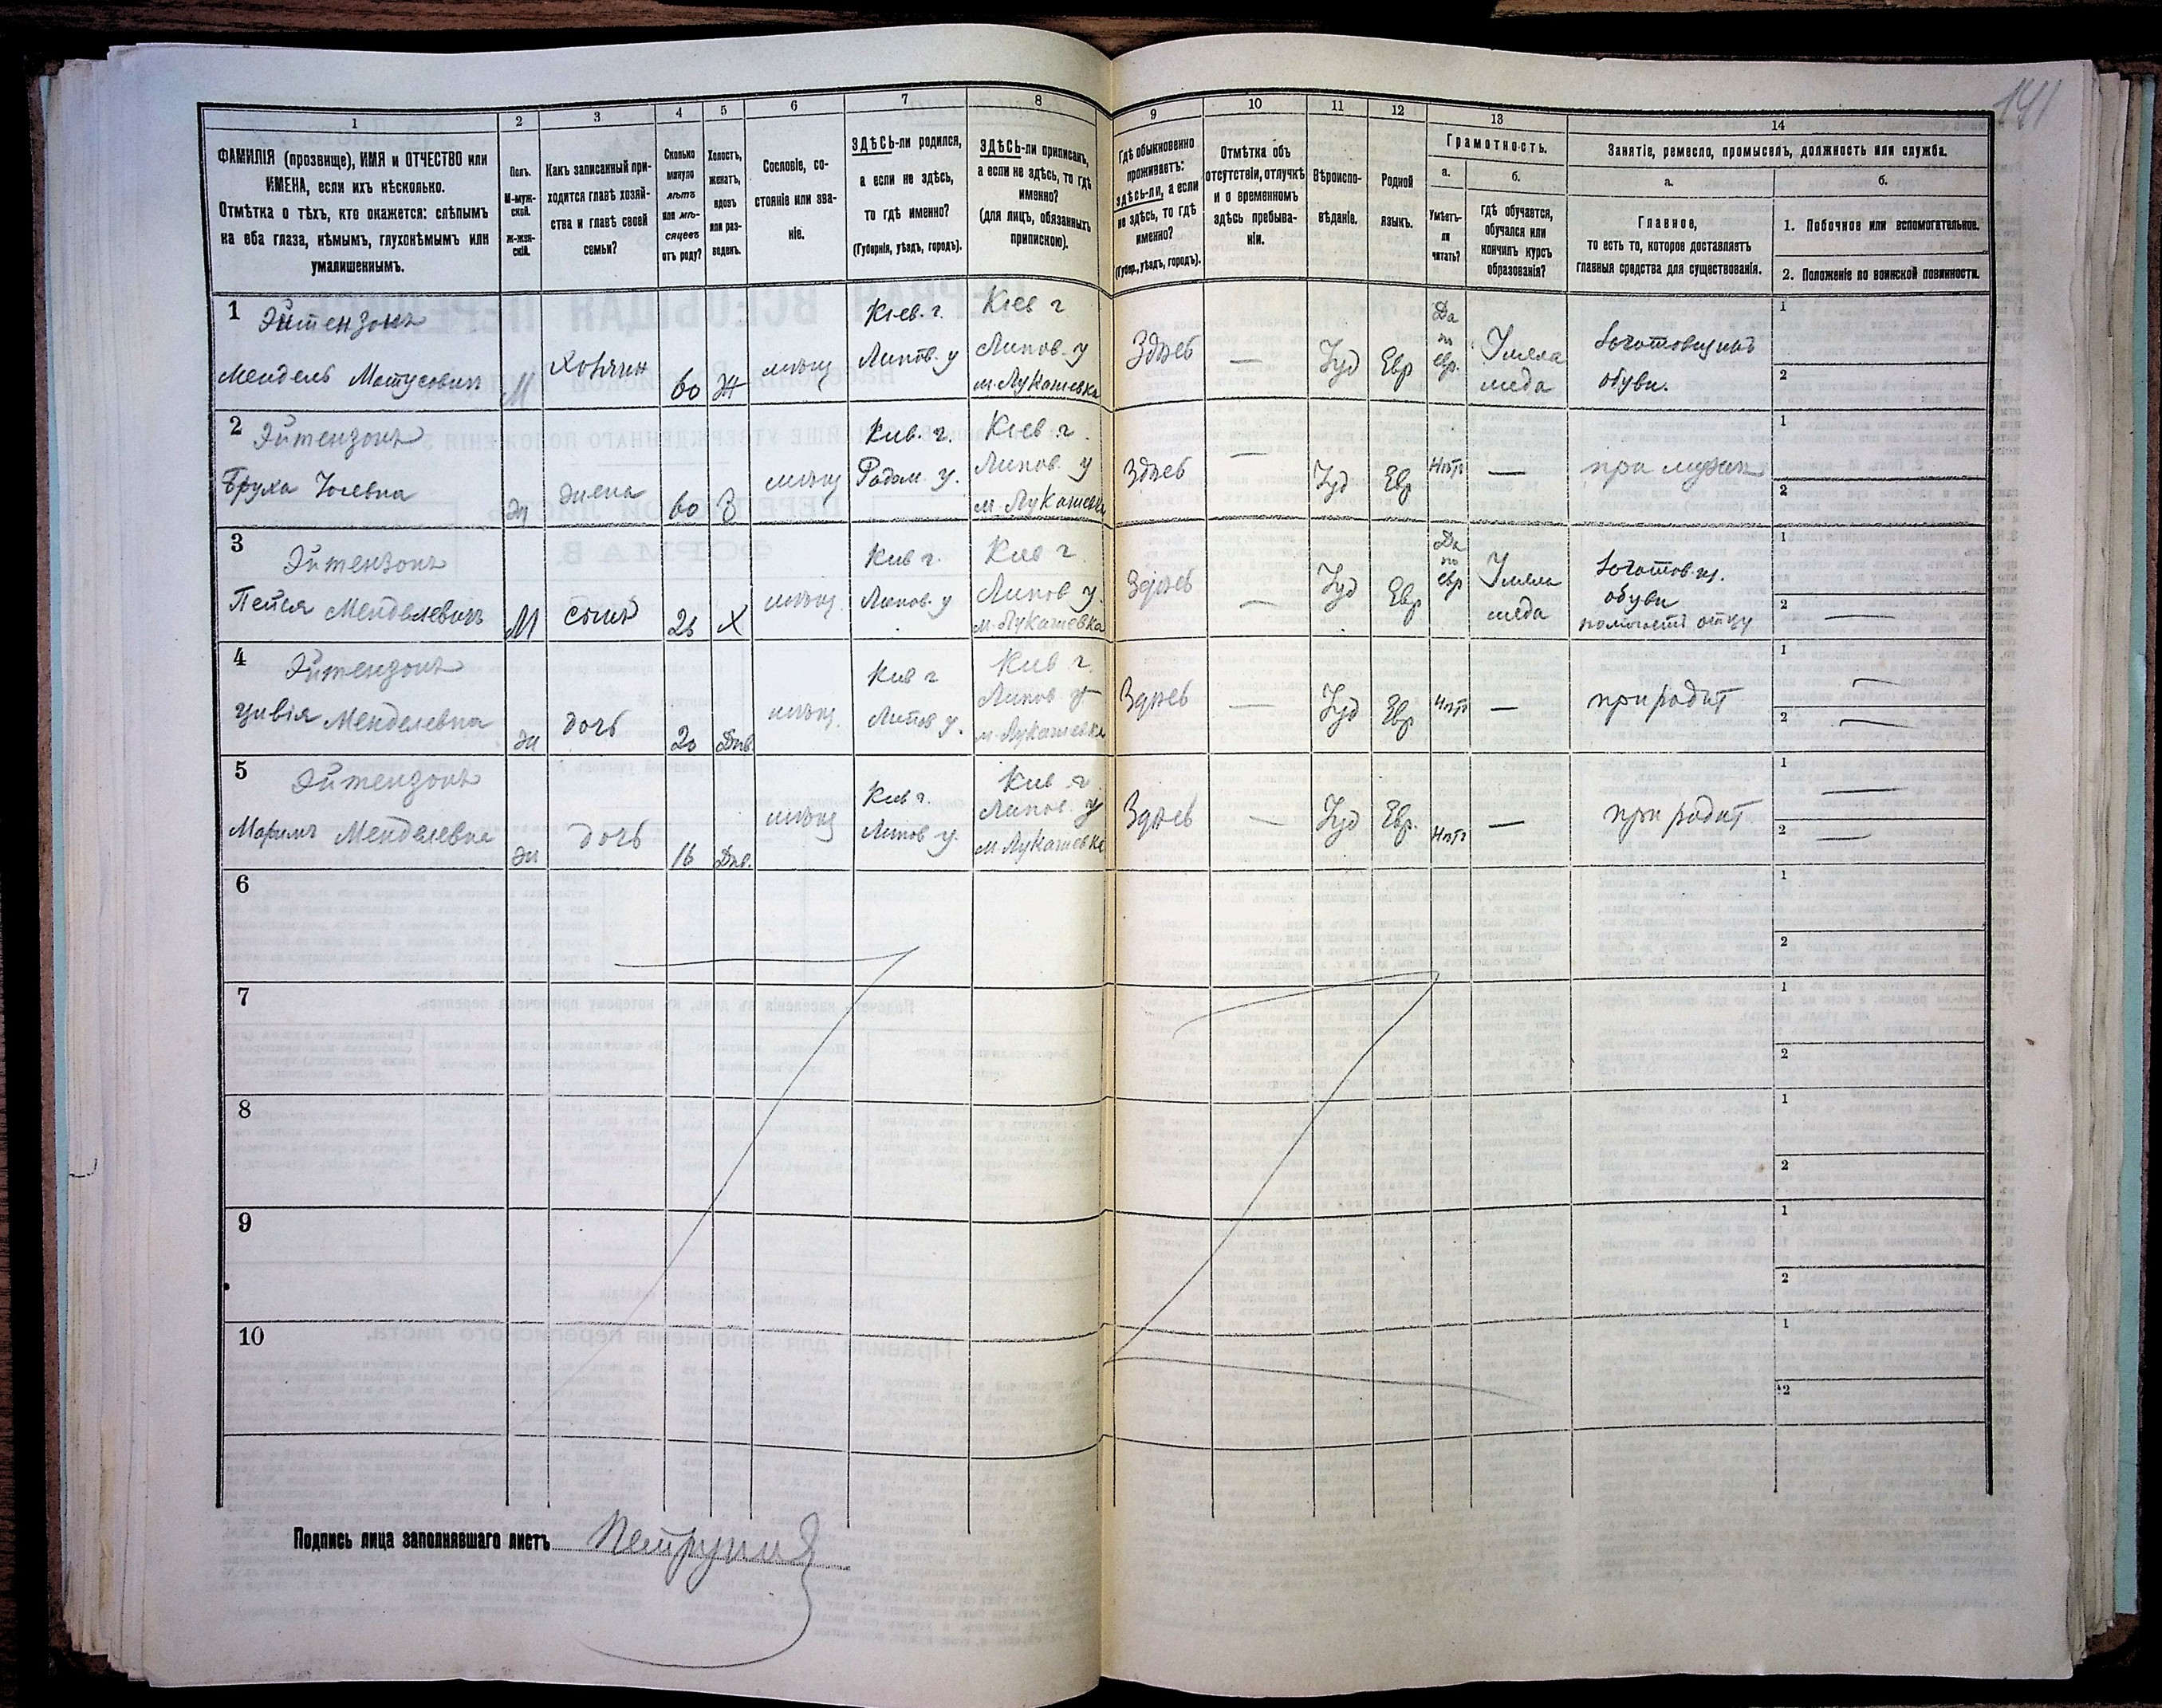 141
1
2
3
4
5
6
7
8
9
10
11
12
13
14
ФАМИЛІЯ (прозвище), ИМЯ и ОТЧЕСТВО или
ИМЕНА, если ихъ нѣсколько.
Отмѣтка о тѣхъ, кто окажется: слѣпымъ
на оба глаза, нѣмымъ, глухонѣмымъ или
умалишеннымъ.
Полъ.
М-муж-
ской.
Ж-жен-
скій.
Какъ записанный при-
ходится главѣ хозяй-
ства и главѣ своей
семьи?
Сколько
минуло
лѣтъ
или мѣ-
сяцевъ
отъ роду?
Холостъ,
женатъ,
вдовъ
или раз-
веденъ.
Сословіе, со-
стояніе или зва-
ніе.
ЗДѢСЬ-ли родился,
а если не здѣсь,
то гдѣ именно?
(Губернія, уѣздъ, городъ).
ЗДѢСЬ-ли приписанъ,
а если не здѣсь, то гдѣ
именно?
(для лицъ, обязанныхъ
припискою).
Гдѣ обыкновенно
проживаетъ:
здѣсь-ли, а если
не здѣсь, то гдѣ
именно?
(Губер., уѣздъ, городъ).
Отмѣтка объ
отсутствіи, отлучкѣ
и о временномъ
здѣсь пребыва-
ніи.
Вѣроиспо-
вѣданіе.
Родной
языкъ.
Грамотность.
а.
Умѣетъ-
ли
читать?
б.
гдѣ обучается,
обучался или
кончилъ курсъ
образованія?
Занятіе, ремесло, промыселъ, должность или служба.
а.
Главное,
то есть то, которое доставляетъ
главныя средства для существованія.
б.
1. Побочное или вспомогательное.
2. Положеніе по воинской повинности.
1 Эйтензонъ
Мендель Мотусовичъ
М
хозяин
60
Ж
мѣщ
Кіев. г.
Липов. у
Кіев г
Липов. у
м. Лукашевка
Здѣсь
—
Іуд
Евр
Да
по
евр.
У мела
меда
обуви.
1
2
2 Эйтензонъ
Бруха
ж
жена
60
З
мѣщ
Киев. г.
Радом. у.
Кіев г.
Липов. у
м. Лукашевка
Здѣсь
—
Іуд
Евр
Нѣтъ
—
при мужѣ
1
2
3 Эйтензонъ
Пейся Менделевичъ
М
сынъ
Х
мѣщ.
Киев г.
Липов. у
Киев г
Липов у.
м. Лукашевка
Здѣсь
—
Іуд
Евр
Да
по
евр
У мела
меда
обуви
помогаетъ отцу
1
2 —
4 Эйтензонъ
Цивія Менделевна
ж
дочь
20
Дѣв
мѣщ.
Киев г
Липов у.
Киев г.
Липов у
м. Лукашевка
Здѣсь
—
Іуд
Евр
Нѣтъ
—
при родит
1 —
2 —
5 Эйтензонъ
Маримъ Менделевна
ж
дочь
16
Дѣв.
мѣщ
Киев г.
Липов у.
Киев г.
Липов. у
м. Лукашевка
Здѣсь
—
Іуд
Евр.
Нѣтъ
—
при родит
1 —
2 —
6
1
2
7
1
2
8
1
2
9
1
2
10
1
2
Подпись лица заполнявшаго листъ